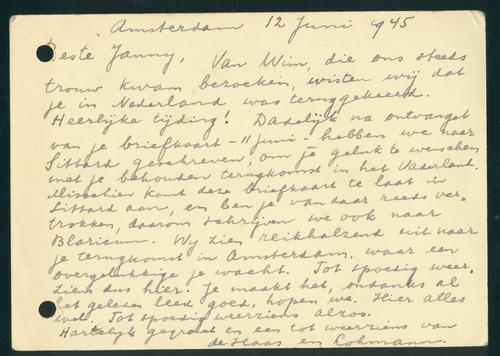 Amsterdam 12 Juni 1945
Beste Janny, Van Wim, die ons steeds
trouw kwam bezoeken, wisten wij dat
je in Nederland was teruggekeerd.
Heerlijke tijding! Dadelijk na ontvangst
van je briefkaart - 11 Juni - hebben we naar
Sittard geschreven, om je geluk te wenschen
met je behouden terugkomst in het Vaderland.
Misschien komt deze briefkaart te laat in
Sittard aan, en ben je van daar reeds ver-
trokken, daarom schrijven we ook naar
Blaricum. Wij zien reikhalzend uit naar
je terugkomst in Amsterdam, waar een
overgelukkige je wacht. Tot spoedig weer-
ziens dus hier. Je maakt het, ondanks al
het geleden leed goed, hopen we. Hier alles
wel. Tot spoedig weerziens alzoo.
Hartelijk gegroet en een tot weerziens van
de Haas en Lohmann.